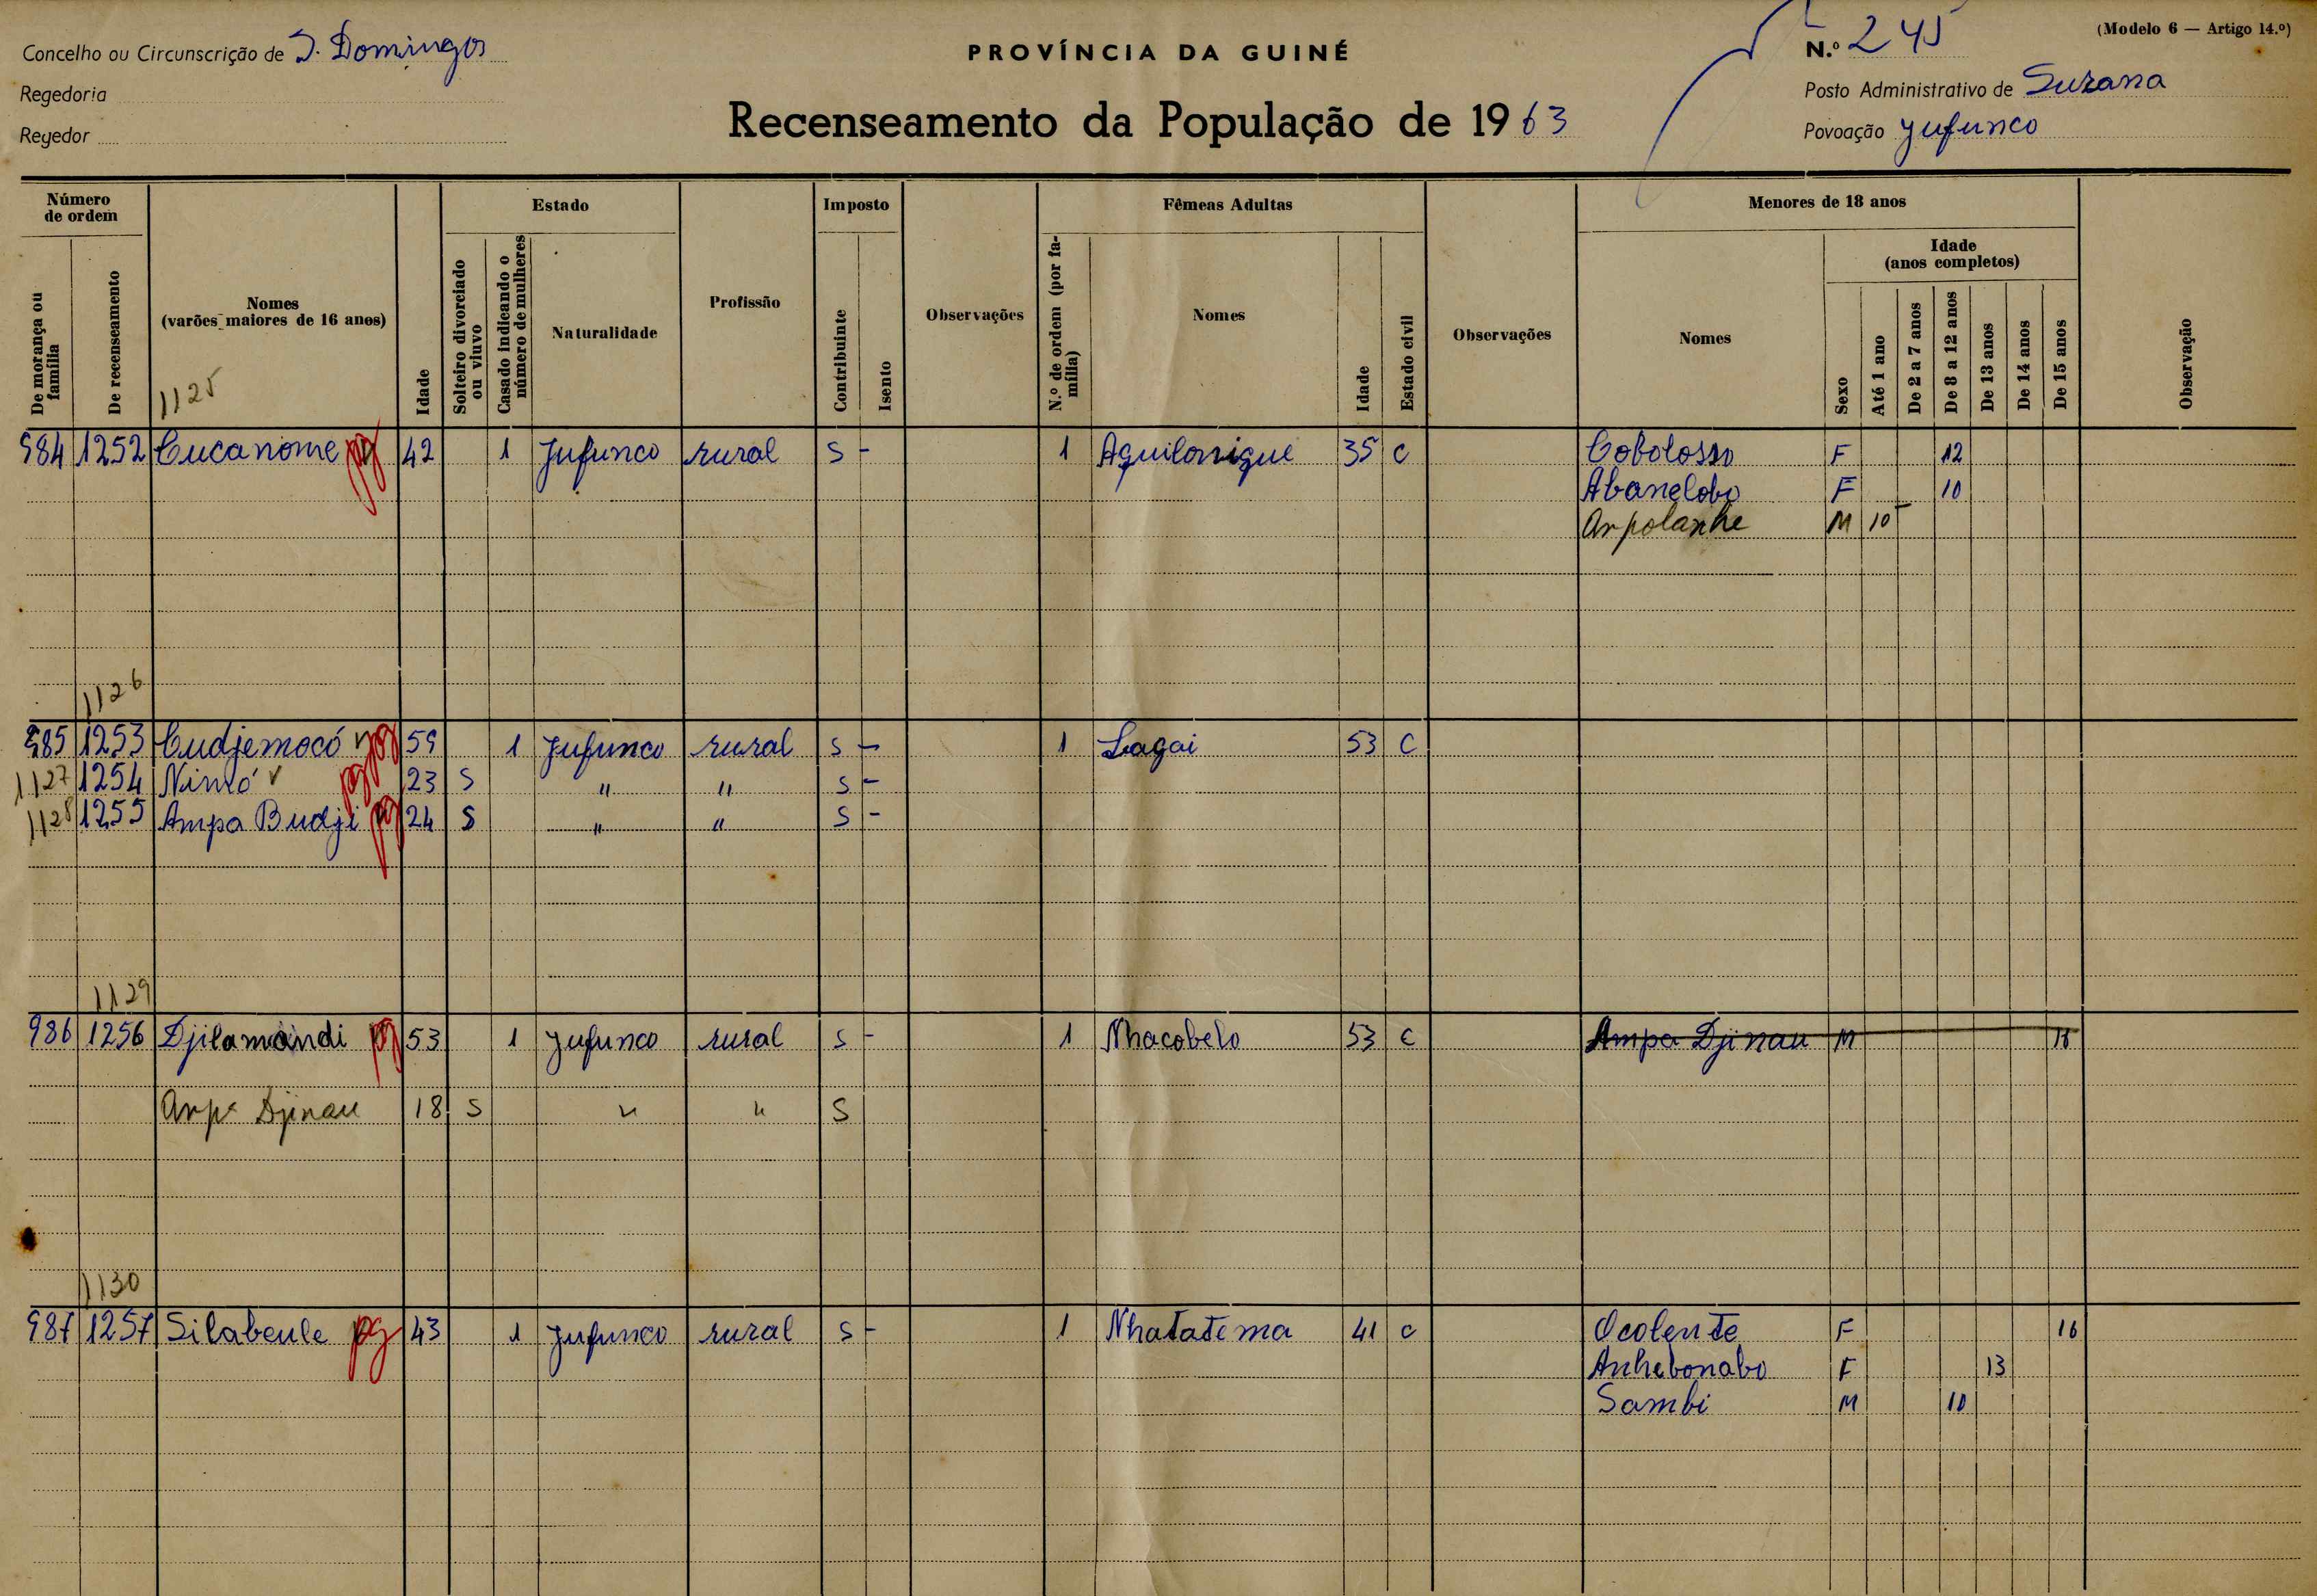 Concelho ou Circunscrição de S. Domingos
Regedoria
Regedor
PROVÍNCIA DA GUINÉ
Recenseamento da População de 1963
(Modelo 6 — Artigo 14.º)
N.º 245
Posto Administrativo de Suzana
Povoação Jufunco
Número de ordem
De morança ou família
De recenseamento
Nomes (varões maiores de 16 anos)
Idade
Estado
Solteiro divorciado ou viuvo
Casado indicando o número de mulheres
Naturalidade
Profissão
Imposto
Contribuinte
Isento
Observações
Fêmeas Adultas
N.º de ordem (por família)
Nomes
Idade
Estado civil
Observações
Menores de 18 anos
Nomes
Idade (anos completos)
Sexo
Até 1 ano
De 2 a 7 anos
De 8 a 12 anos
De 13 anos
De 14 anos
De 15 anos
Observação
1125
984 1252 Cucanome pg 42 1 Jufunco rural S - 1 Aquilonique 35 C Cobolosso F 12
Abanelobo F 10
Anpolanhe M 10
1126
985 1253 Cudjemocó pg 59 1 Jufunco rural S - 1 Lagai 53 C
1127 1254 Nimó v pg 23 S " " S -
1128 1255 Ampa Budji pg 24 S " " S -
1129
986 1256 Djilamandi pg 53 1 Jufunco rural S - 1 Nhacobelo 53 C Ampa Djinau M
Anpa Djinau 18 S " " S
1130
987 1257 Silabeule pg 43 1 Jufunco rural S - 1 Nhatatema 41 C Ocolente F 16
Anhebonabo F 13
Sambi M 10